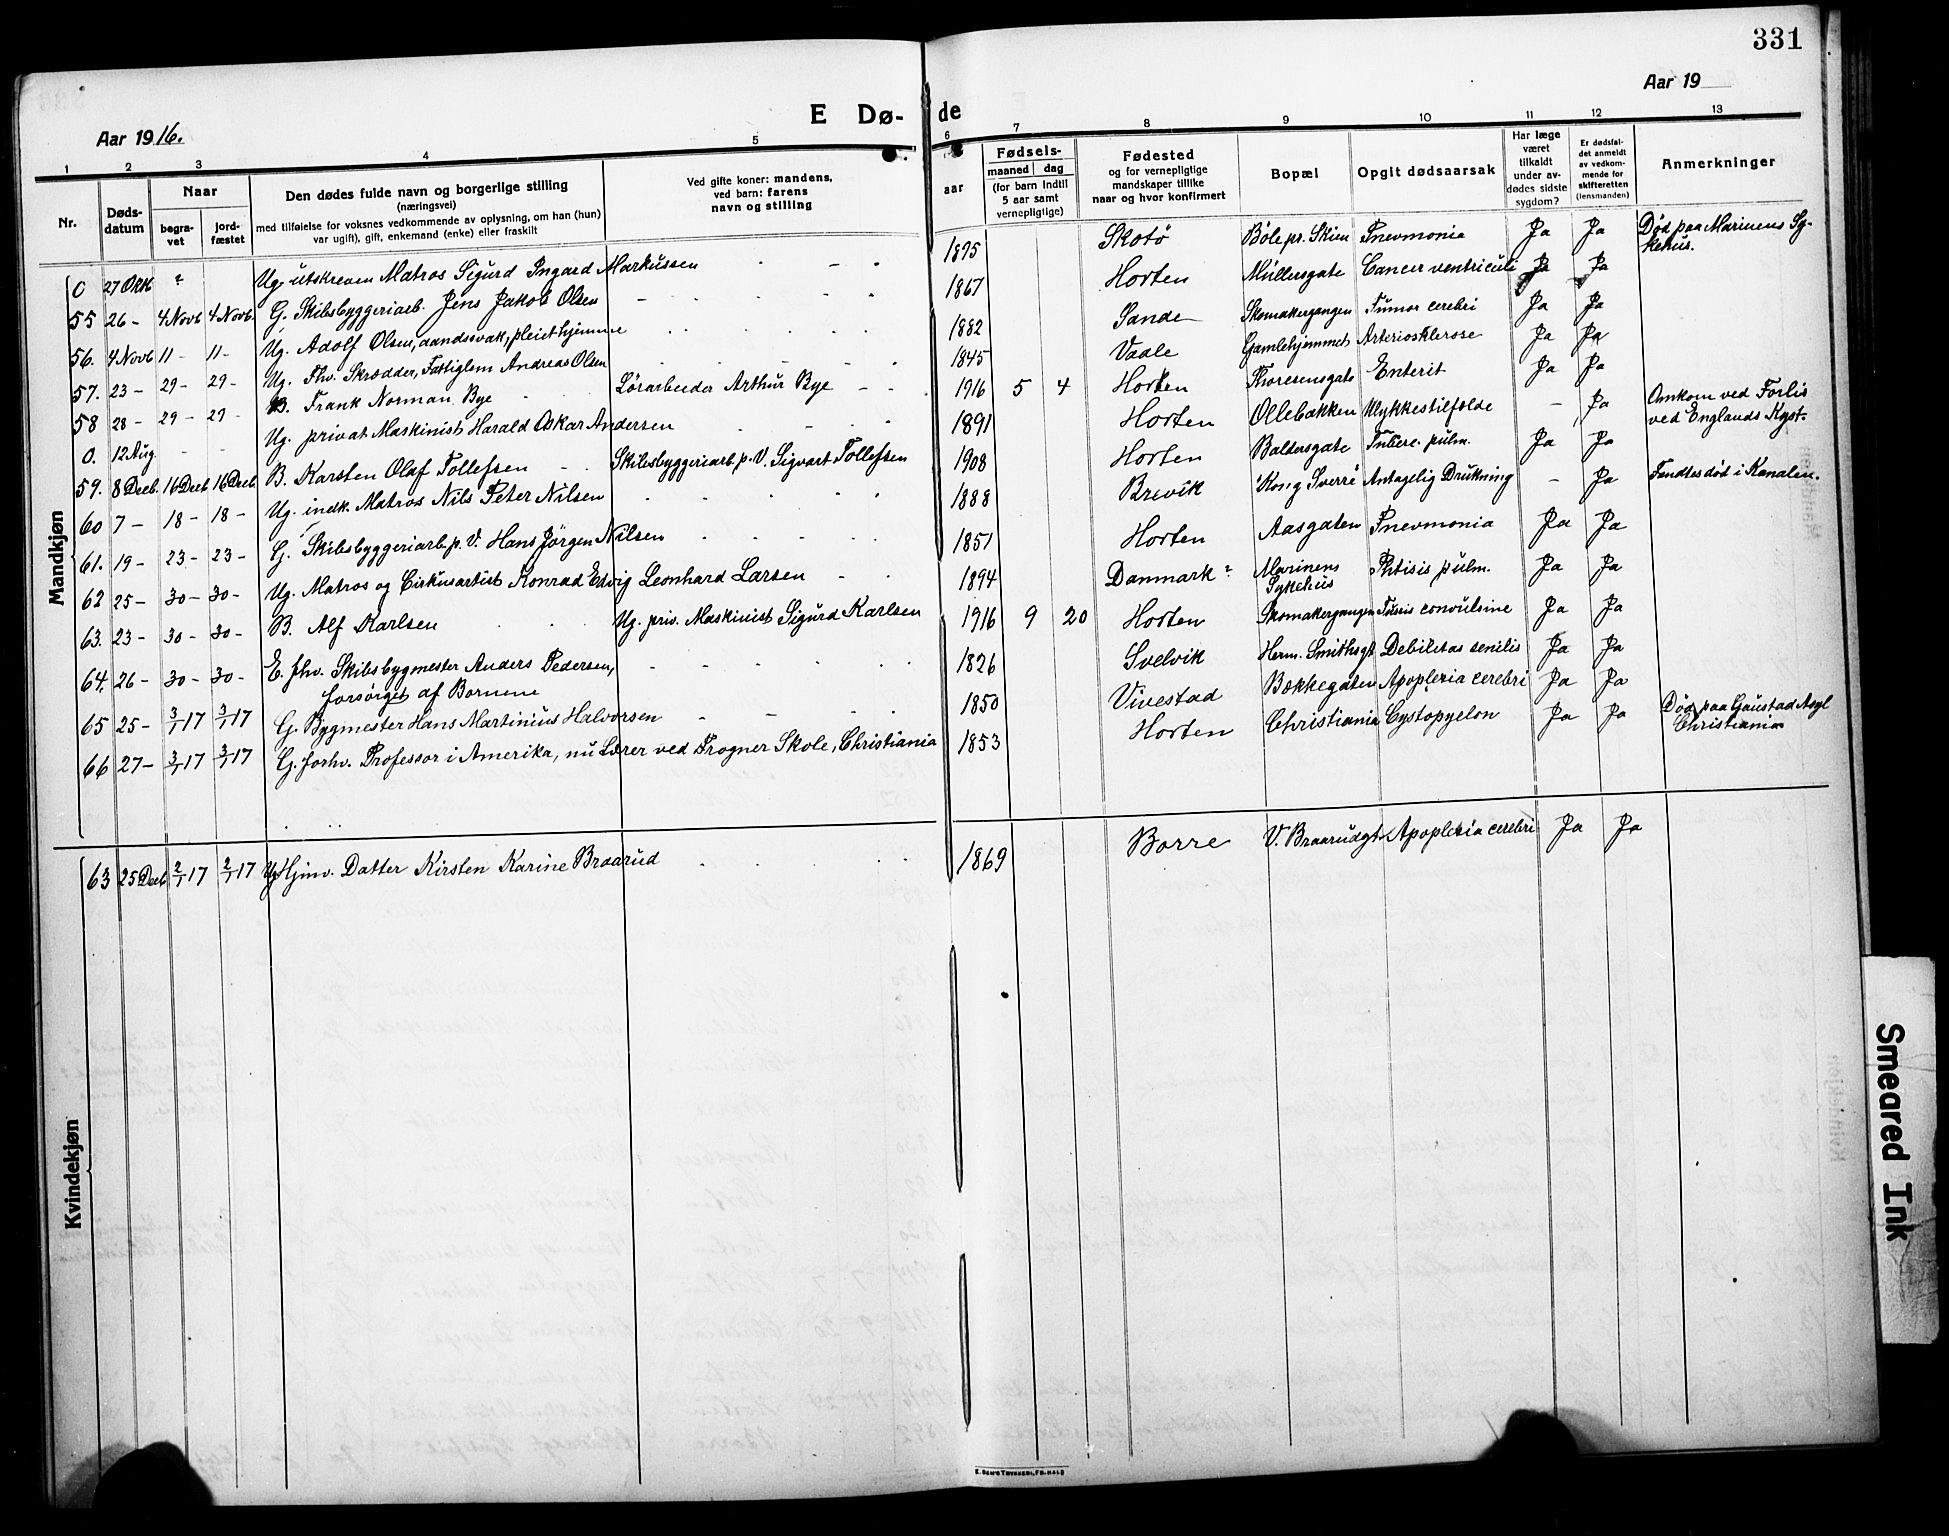 331
Aar 1916.
E Dø-
de
Aar 19
1 2 3 4 5 6 7 8 9 10 11 12 13
Nr.
Døds-
datum
Naar
begra-
vet
jord-
fæstet
Den dødes fulde navn og borgerlige stilling
(næringsvei)
med tilføielse for voksnes vedkommende av oplysning, om han (hun)
var ugift), gift, enkemand (enke) eller fraskilt
Ved gifte koner: mandens,
ved barn: farens
navn og stilling
aar
Fødsels-
maaned dag
(for barn indtil
5 aar samt
vernepligtige)
Fødested
og for vernepligtige
mandskaper tillike
naar og hvor konfirmert
Bopæl
Opgit dødsaarsak
Har læge
været
tilkaldt
under av-
dødes sidste
sygdom?
Er dødsfal-
det anmeldt
av vedkom-
mende for
skifteretten
(lensmanden)
Anmerkninger
Mandkjøn
0 27 Okt ? Ug. utskreven Matros Sigurd Ingard Markussen - - - 1895 Skotø Bøle pr. Skien Pnevmonia Ja Ja Død paa Marinens Sy-
kehus.
55 26- 4 Novb 4 Novb. G. Skibsbyggeriarb. Jens Jakob Olsen - - - 1867 Horten Müllersgate Cancer ventriculi Ja Ja
56. 4 Novb 11- 11- Ug. Adolf Olsen, aandssvak, pleiethjemme 1882 Sande Skomakergangen Tumor cerebri Ja Ja
57. 23- 29- 29- Ug. Fhv. Skrædder, Fattiglem Andreas Olsen 1845 Vaale Gamlehjemmet Arteriosklerose Ja Ja
58 28- 29- 29- B. Frank Norman Bye Lørarbeider Arthur Bye - - 1916 5 4 Horten Thoresensgate Enterit Ja Ja
0. 12 Aug. - - Ug. privat Maskinist Harald Oskar Andersen 1891 Horten Ollebakken Ulykkestilfælde - Ja Omkom ved Forlis
ved Englands Kyst-
59. 8 Decb. 16 Decb 16 Decb. B. Karsten Olaf Tollefsen - Skibsbyggeriarb. p. V. Sigvart Tollefsen 1908 Horten Baldersgate Tuberc. pulm. Ja Ja
60 7- 18- 18- Ug. indk. Matros Nils Peter Nilsen 1888 Brevik "Kong Sverre" Antagelig Drukning - Ja Fandtes død i Kanalen.
61. 19- 23- 23- G. Skibsbyggeriarb. p. V. Hans Jørgen Nilsen 1851 Horten Aasgaten Pnevmonia Ja Ja
62 25- 30- 30- Ug. Matros og Cirkusartist Konrad Edvig Leonhard Larsen - - 1894 Danmark? Marinens
Sykehus Phtisis pulm. Ja Ja
63. 23- 30- 30- B. Alf Karlsen Ug. priv. Maskinist Sigurd Karlsen 1916 9 20 Horten Skomakergangen Tussis convulsine Ja Ja
64. 26- 30- 30- E. fhv. Skibsbygmester Anders Pedersen,
forsørget af Børnene 1826 Svelvik Herm. Smithsgt Debilitas senilis Ja Ja
65 25- 3/1 17 3/1 17 G. Bygmester Hans Martinius Halvorsen - - - 1850 Vivestad Bækkegaten Apoplexia cerebri Ja Ja
66 27- 3/1 17 3/1 17 G. forhv. Professor i Amerika, nu Lærer ved Frogner Skole, Christiania 1853 Horten Christiania Cystopyelon Ja Ja Død paa Gaustad Asyl
Christiania
Kvindekjøn
63 25 Decb 2/1 17 2/1 17 Ug Hjmv. Datter Kirsten Karine Braarud 1869 Borre V. Braarudgt Apoplexia cerebri Ja Ja
Smeared Ink